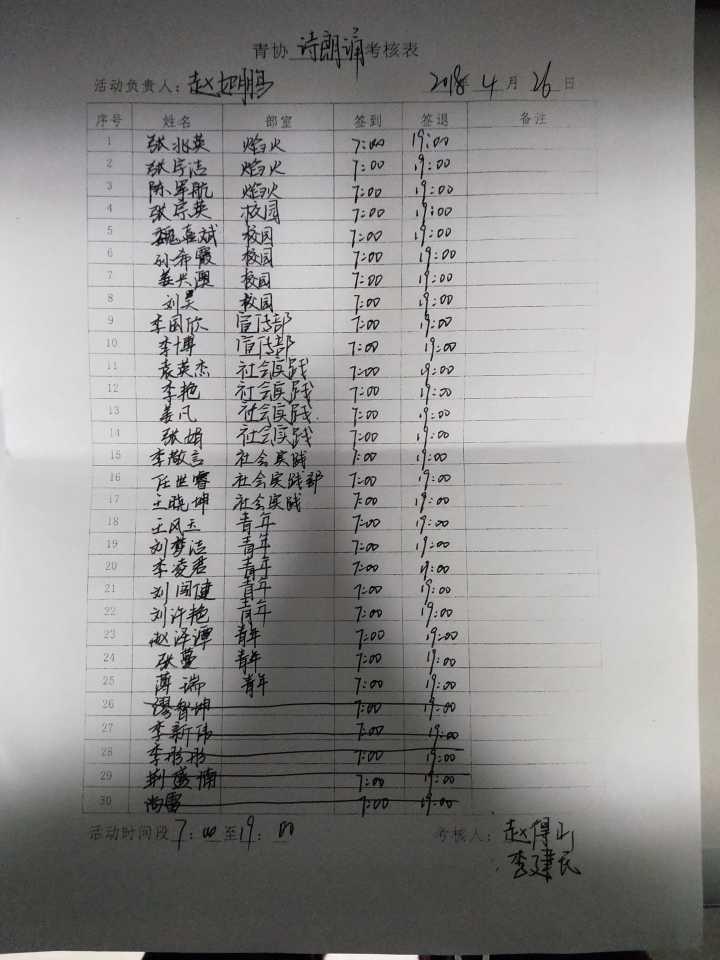 青协 诗朗诵 考核表
活动负责人：赵如鹏 2018年 4 月 26 日
序号 姓名 部室 签到 签退 备注
1 张兆英 焰火 7:00 19:00
2 张宇洁 焰火 7:00 19:00
3 陈军航 焰火 7:00 19:00
4 张京英 校园 7:00 19:00
5 斌 校园 7:00 19:00
6 孙希霞 校园 7:00 19:00
7 姜兴 校园 7:00 19:00
8 刘昊 校园 7:00 19:00
9 李国欣 宣传部 7:00 19:00
10 李博 宣传部 7:00 19:00
11 袁英杰 社会实践 7:00 19:00
12 李艳 社会实践 7:00 19:00
13 姜凡 社会实践 7:00 19:00
14 张娟 社会实践 7:00 19:00
15 李敬言 社会实践 7:00 19:00
16 任世睿 社会实践部 7:00 19:00
17 王晓坤 社会实践 7:00 19:00
18 王风云 青年 7:00 19:00
19 刘梦洁 青年 7:00 19:00
20 李凌君 青年 7:00 19:00
21 刘闯健 青年 7:00 19:00
22 刘许艳 青年 7:00 19:00
23 赵泽潭 青年 7:00 19:00
24 张蔓 青年 7:00 19:00
25 薄瑞 青年 7:00 19:00
26 缪智坤 7:00 19:00
27 李新伟 7:00 19:00
28 李彤彤 7:00 19:00
29 荆盛楠 7:00 19:00
30 尚雷 7:00 19:00
活动时间段 7：00 至 19：00 考核人：赵得
李建民